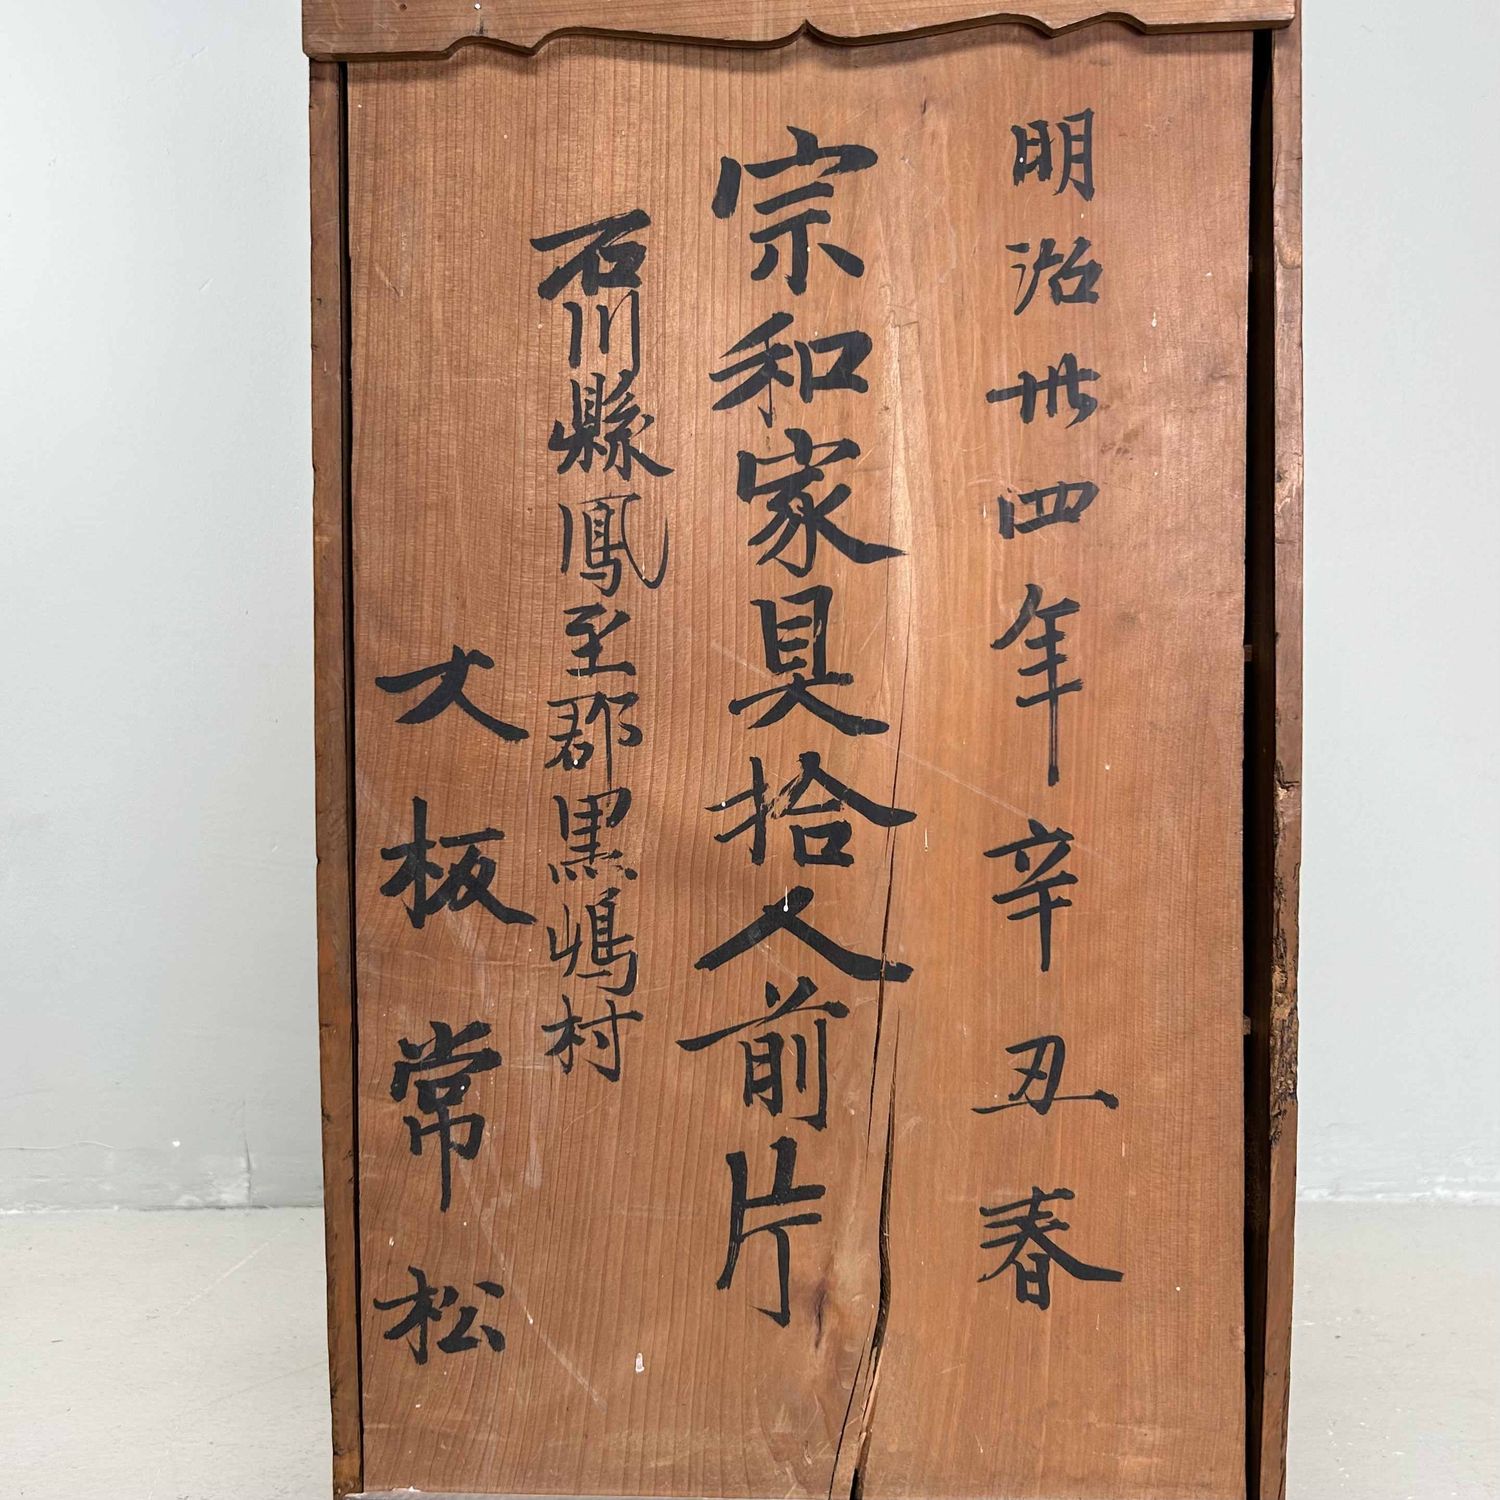 明治丗四年辛丑春
宗和家具拾人前片
石川縣鳳至郡黒嶋村
大板常松